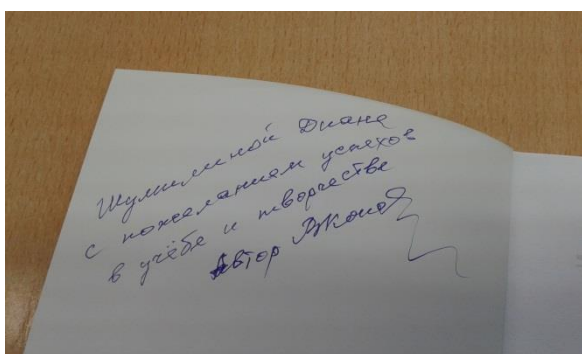 Шумилиной Диане
с пожеланием успехов
в учёбе и творчестве
Автор